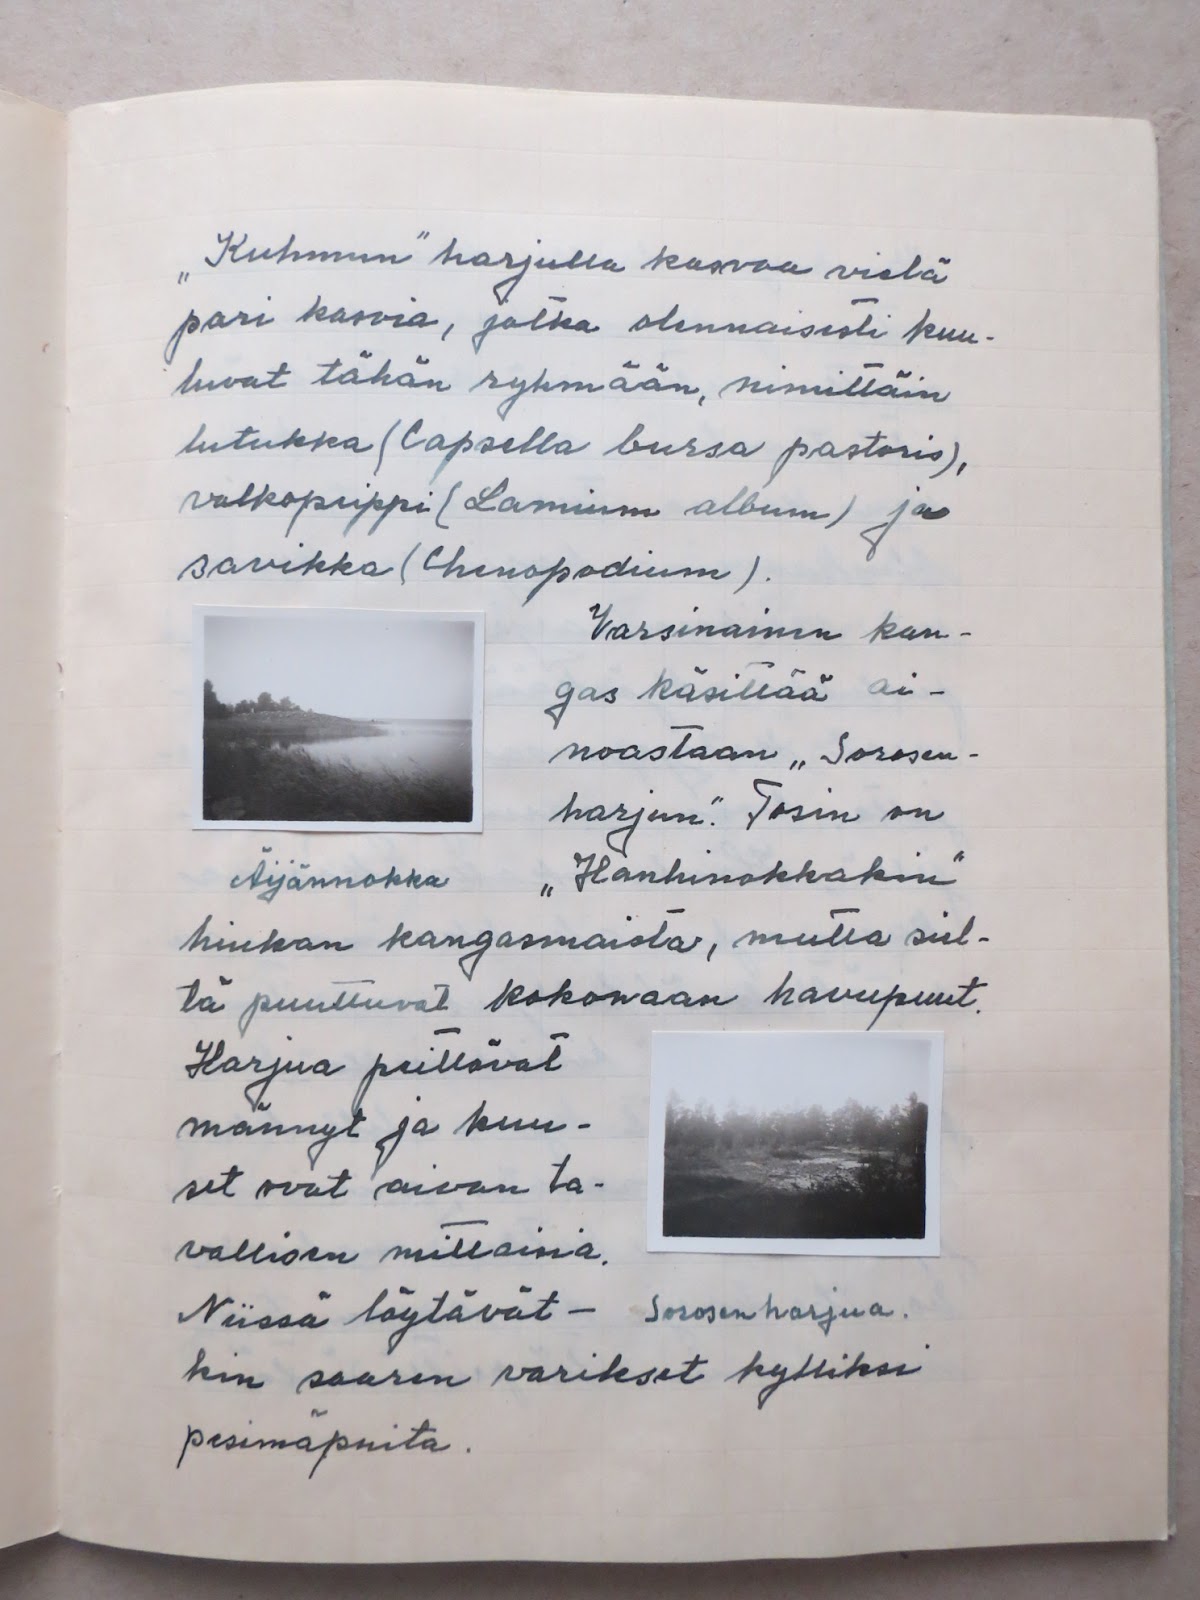 „Kuhmun" harjulla kasvaa vielä
pari kasvia, jotka olennaisesti kuu-
luvat tähän ryhmään, nimittäin
lutukka (Capsella bursa pastoris),
valkopeippi (Lamium album) ja
savikka (Chenopodium).
Varsinainen kan-
gas käsittää ai-
noastaan „Sorosen-
harjun". Tosin on
Äijännokka
„Hanhinokkakin"
hiukan kangasmaista, mutta siel-
tä puuttuvat kokonaan havupuut.
Harjua peittävät
männyt ja kuu-
set ovat aivan ta-
vallisen mittaisia.
Niissä löytävät-
Sorosenharjua.
kin saaren varikset kylliksi
pesimäpuita.